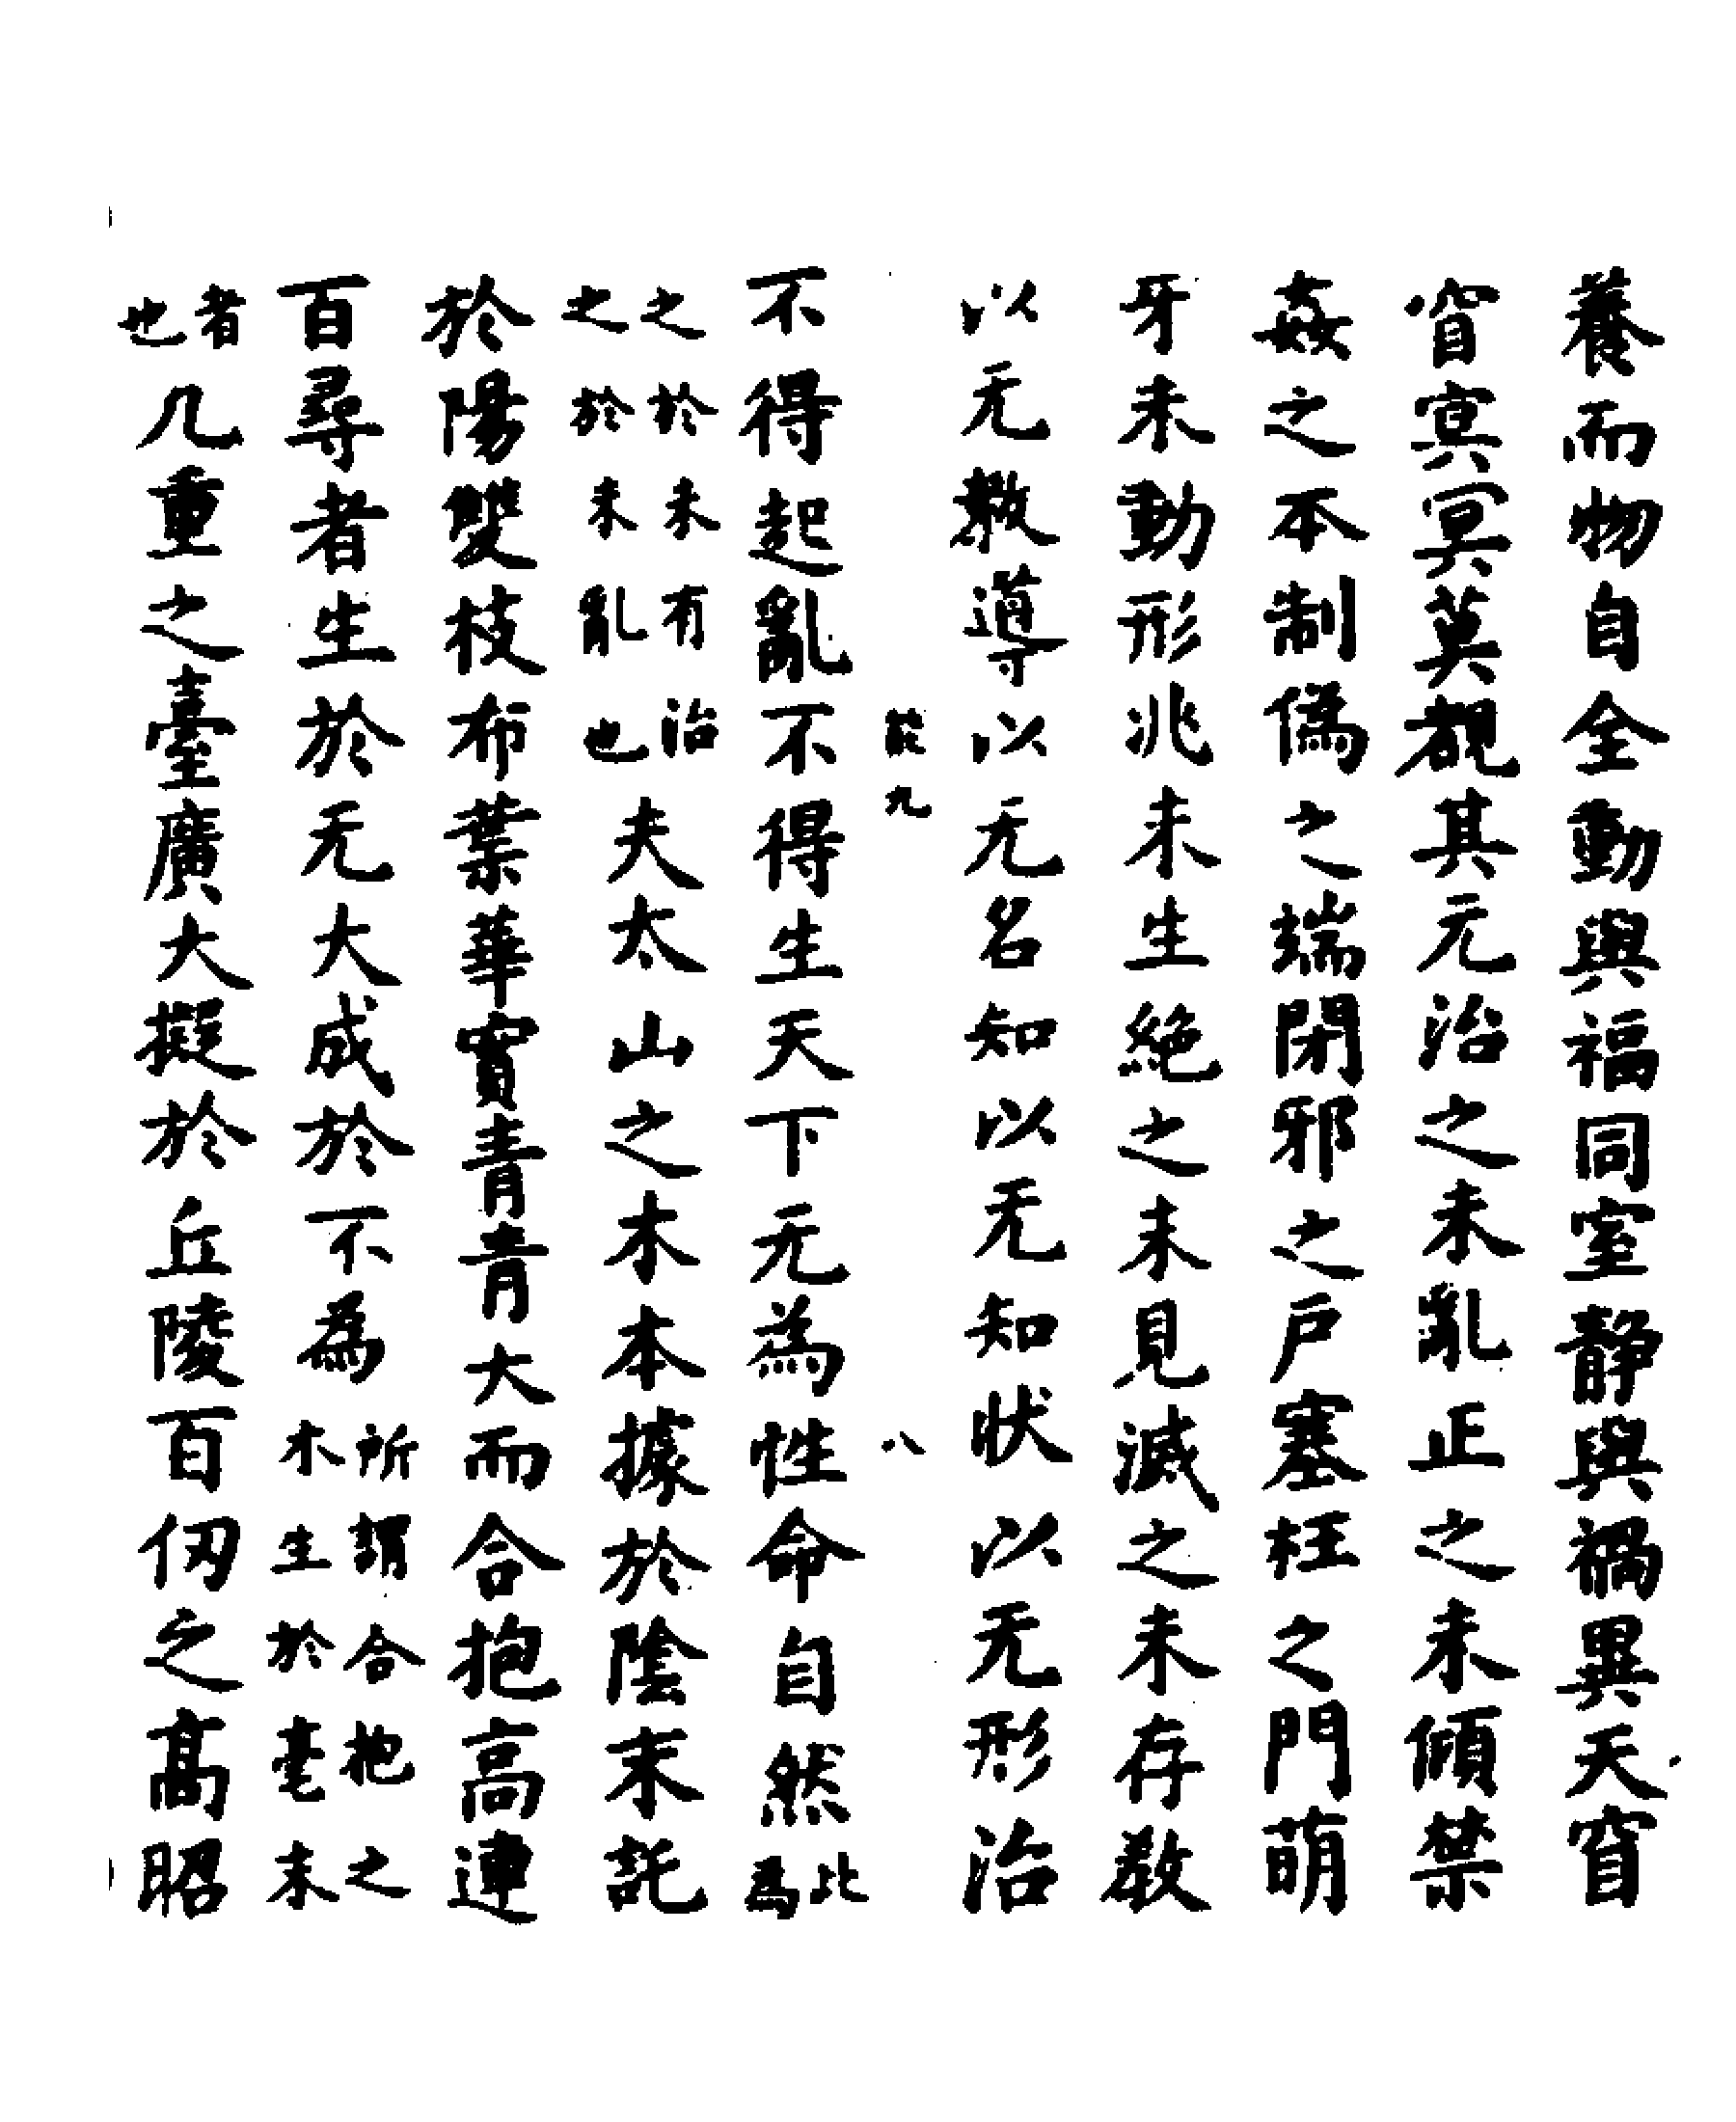 養而物自全動與福同室静與禍異天窅
窅冥冥莫覩其元治之未亂正之未傾禁
姦之本制偽之端閉邪之户塞枉之門萌
牙未動形兆未生絶之未見滅之未存教
以无教導以无名知以无知状以无形治
能九　八
不得起亂不得生天下无為性命自然比為
之於未有治之於未亂也夫太山之木本據於陰末託
於陽雙枝布葉華實青青大而合抱高連
百尋者生於无大成於不為所謂合抱之木生於毫末
者也几重之臺廣大擬於丘陵百仞之髙昭